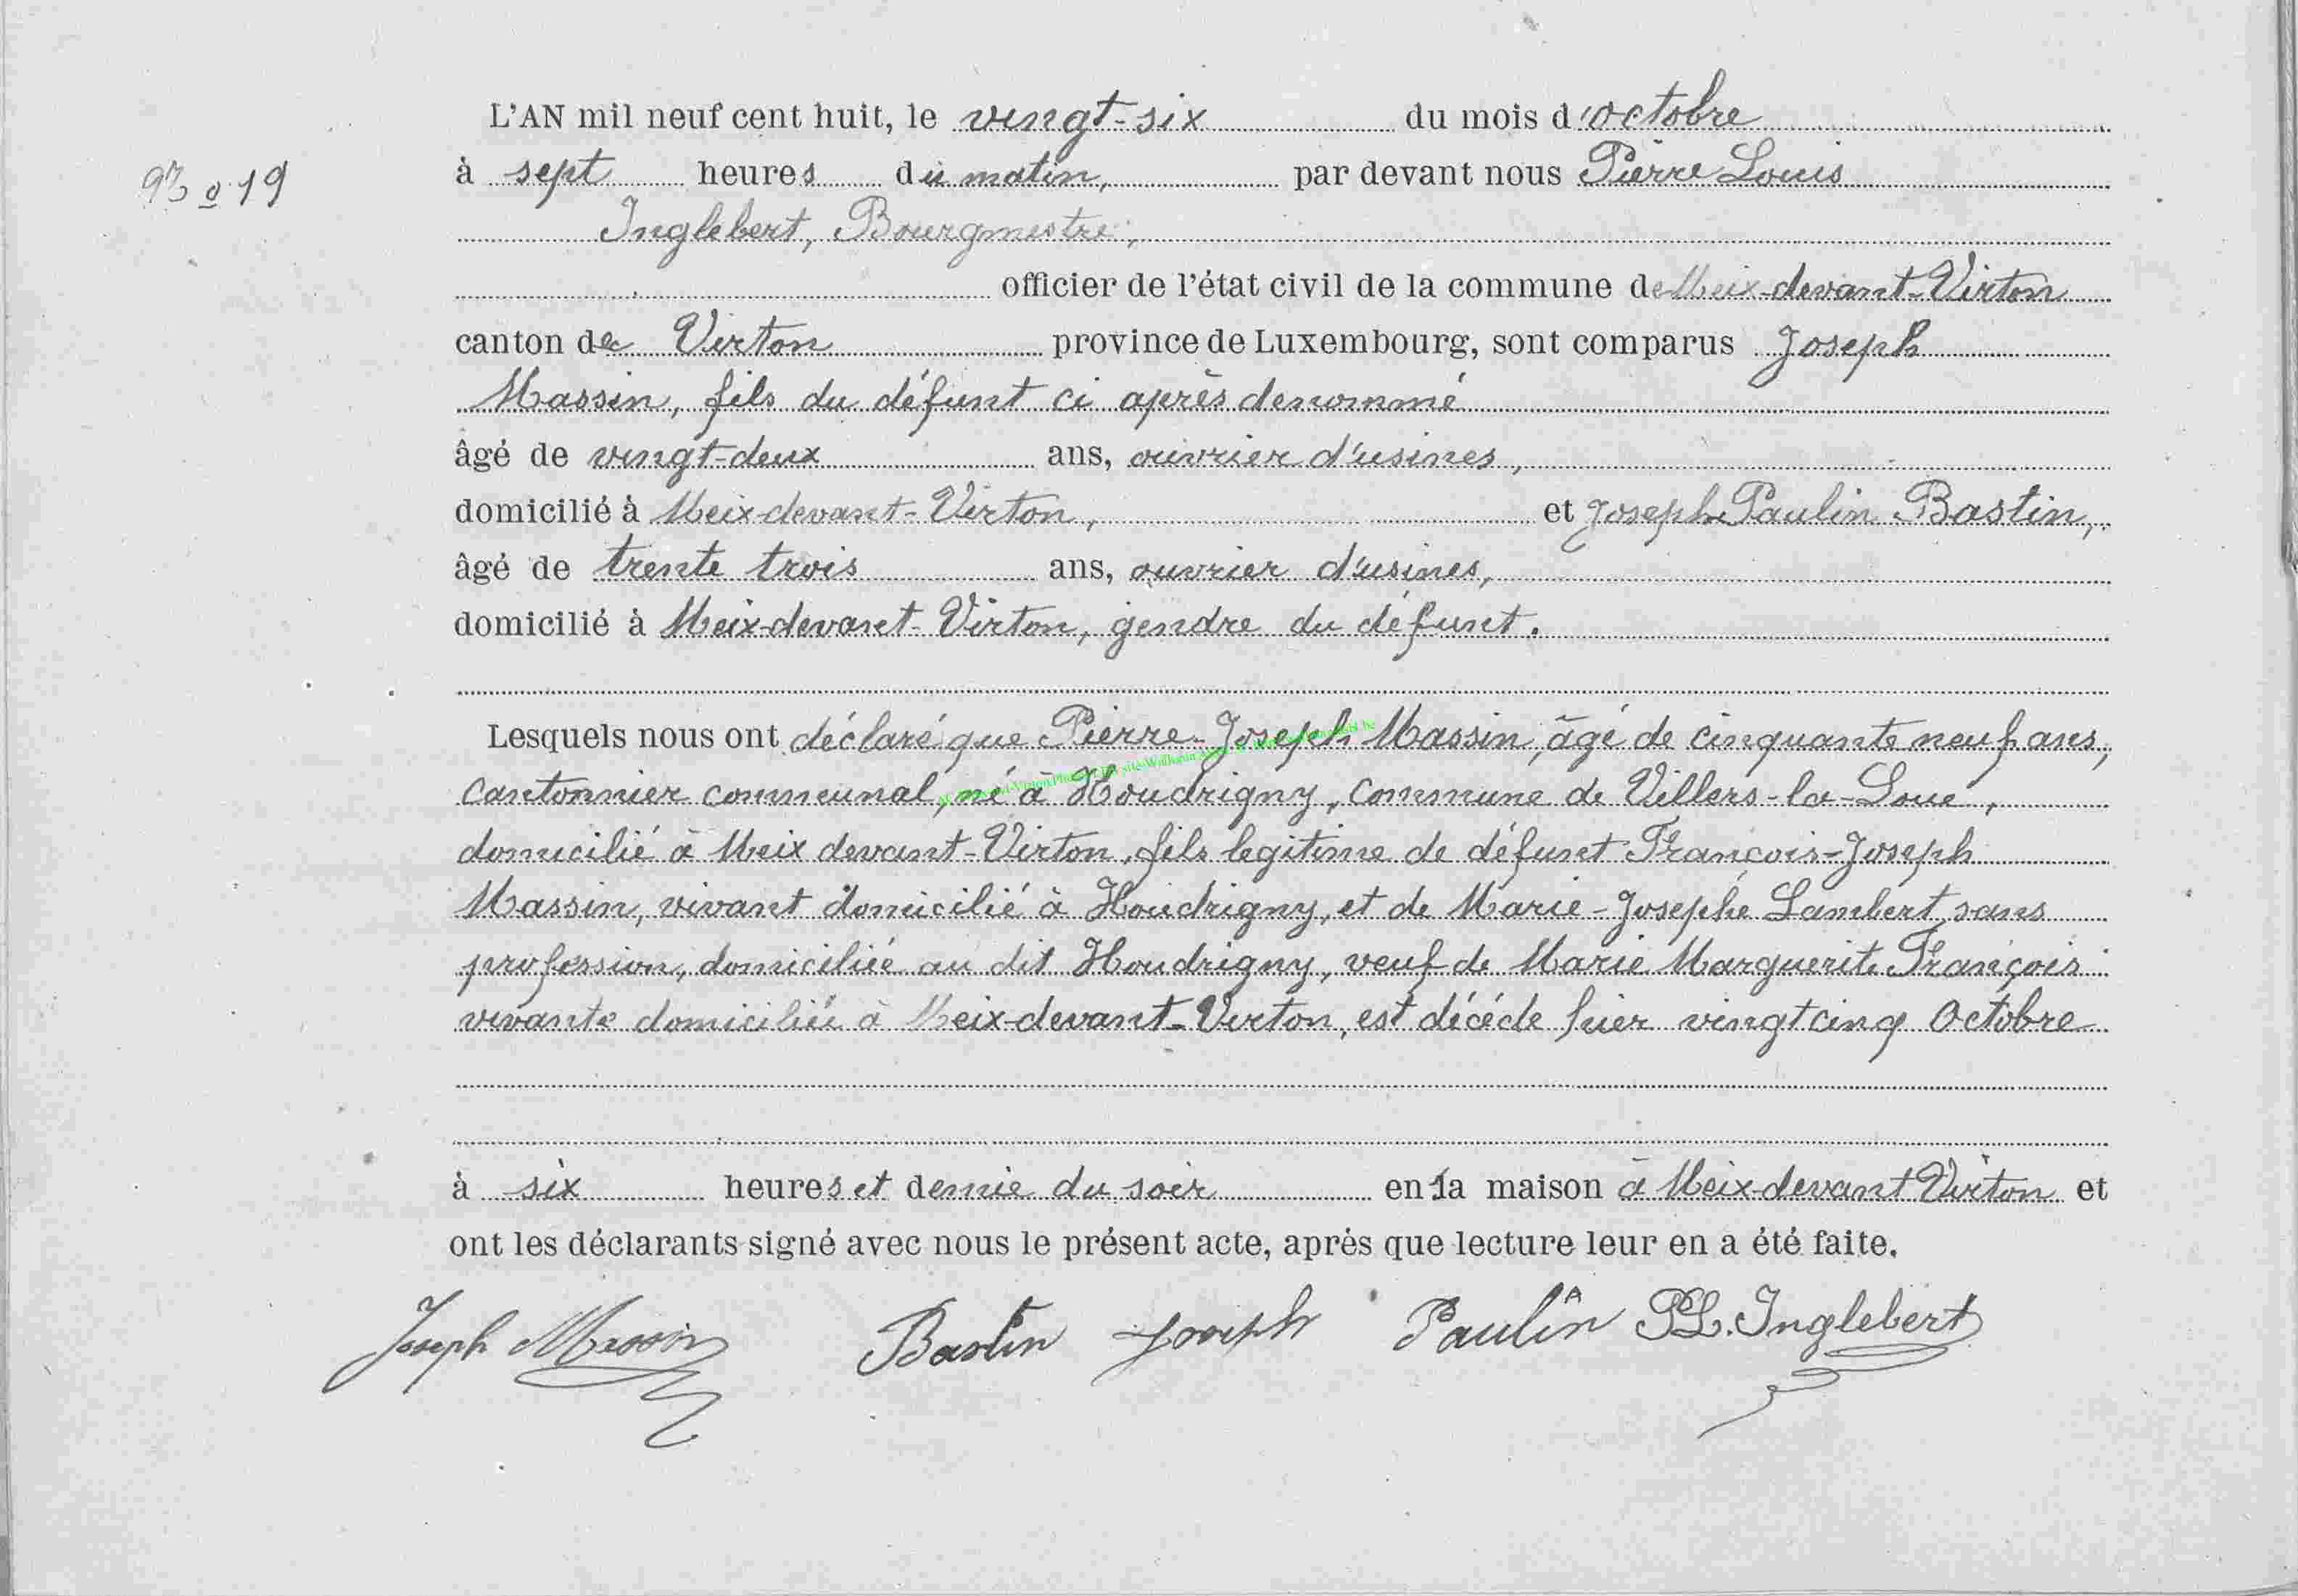 L'AN mil neuf cent huit, le vingt-six du mois d'octobre
Nº 19
à sept heures du matin, par devant nous Pierre Louis
Inglebert, Bourgmestre,
officier de l'état civil de la commune de Meix-devant-Virton
canton de Virton province de Luxembourg, sont comparus Joseph
Massin, fils du défunt ci après denommé
âgé de vingt-deux ans, ouvrier d'usines,
domicilié à Meix-devant-Virton, et Joseph Paulin Bastin,
âgé de trente trois ans, ouvrier d'usines,
domicilié à Meix-devant-Virton, gendre du défunt.
Lesquels nous ont déclaré que Pierre-Joseph Massin, âgé de cinquante neuf ans,
cantonnier communal, né à Houdrigny, commune de Villers-la-Loue,
domicilié à Meix devant-Virton, fils legitime de défunt François-Joseph
Massin, vivant domicilié à Houdrigny, et de Marie-Josephe Lambert, sans
profession, domiciliée au dit Houdrigny, veuf de Marie Marguerite François
vivante domiciliée à Meix-devant-Virton, est décédé hier vingt cinq Octobre
à six heures et demie du soir en sa maison à Meix-devant Virton et
ont les déclarants signé avec nous le présent acte, après que lecture leur en a été faite.
Joseph Massin Bastin Joseph Paulin PL. Inglebert